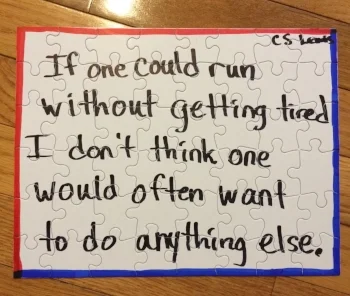 CS Lewis
If one could run
without getting tired
I don't think one
would often want
to do anything else.